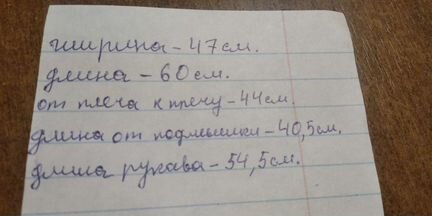 ширина - 47 см.
длина - 60 см.
от плеча к плечу - 44 см.
длина от подмышки - 40,5 см.
длина рукава - 54,5 см.